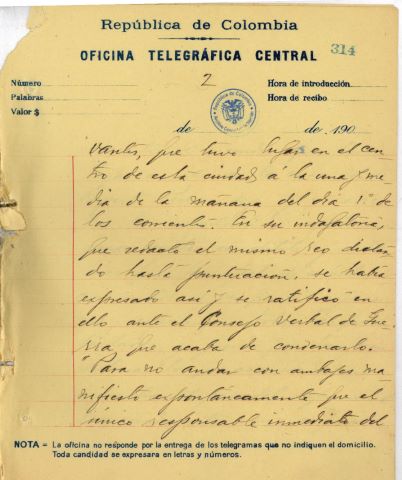 República de Colombia
OFICINA TELEGRÁFICA CENTRAL
314
Número
2
Hora de introducción
Palabras
Hora de recibo
Valor $
de de 190
vantes, que tuvo lugar en el cen
tro de esta ciudad á la una y me
dia de la mañana del día 1º de
los corrientes. En su indagatoria,
que redactó el mismo reo dictan
do hasta puntuación, se había
expresado así y se ratificó en
ello ante el Consejo Verbal de Gue
rra que acaba de condenarlo.
"Para no andar con ambajes ma
nifiesto espontáneamente que el
único responsable inmediato del
NOTA = La oficina no responde por la entrega de los telegramas que no indiquen el domicilio.
Toda candidad se expresara en letras y números.